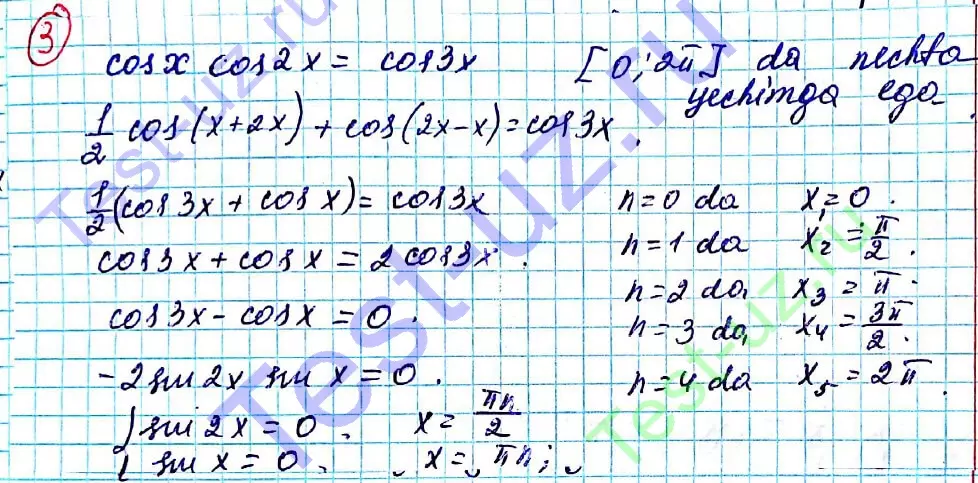 3
cos x cos 2x = cos 3x [0; 2π] da nechta
yechimga ega.
1/2 cos(x+2x) + cos(2x-x) = cos 3x.
1/2 (cos 3x + cos x) = cos 3x
cos 3x + cos x = 2 cos 3x.
cos 3x - cos x = 0.
-2 sin 2x sin x = 0.
{ sin 2x = 0. x = πn/2
sin x = 0. x = πn;
n=0 da x₁=0.
n=1 da x₂ = π/2.
n=2 da x₃ = π.
n=3 da x₄ = 3π/2.
n=4 da x₅ = 2π.
Test-uz.ru
Test-uz.ru
Test-uz.ru